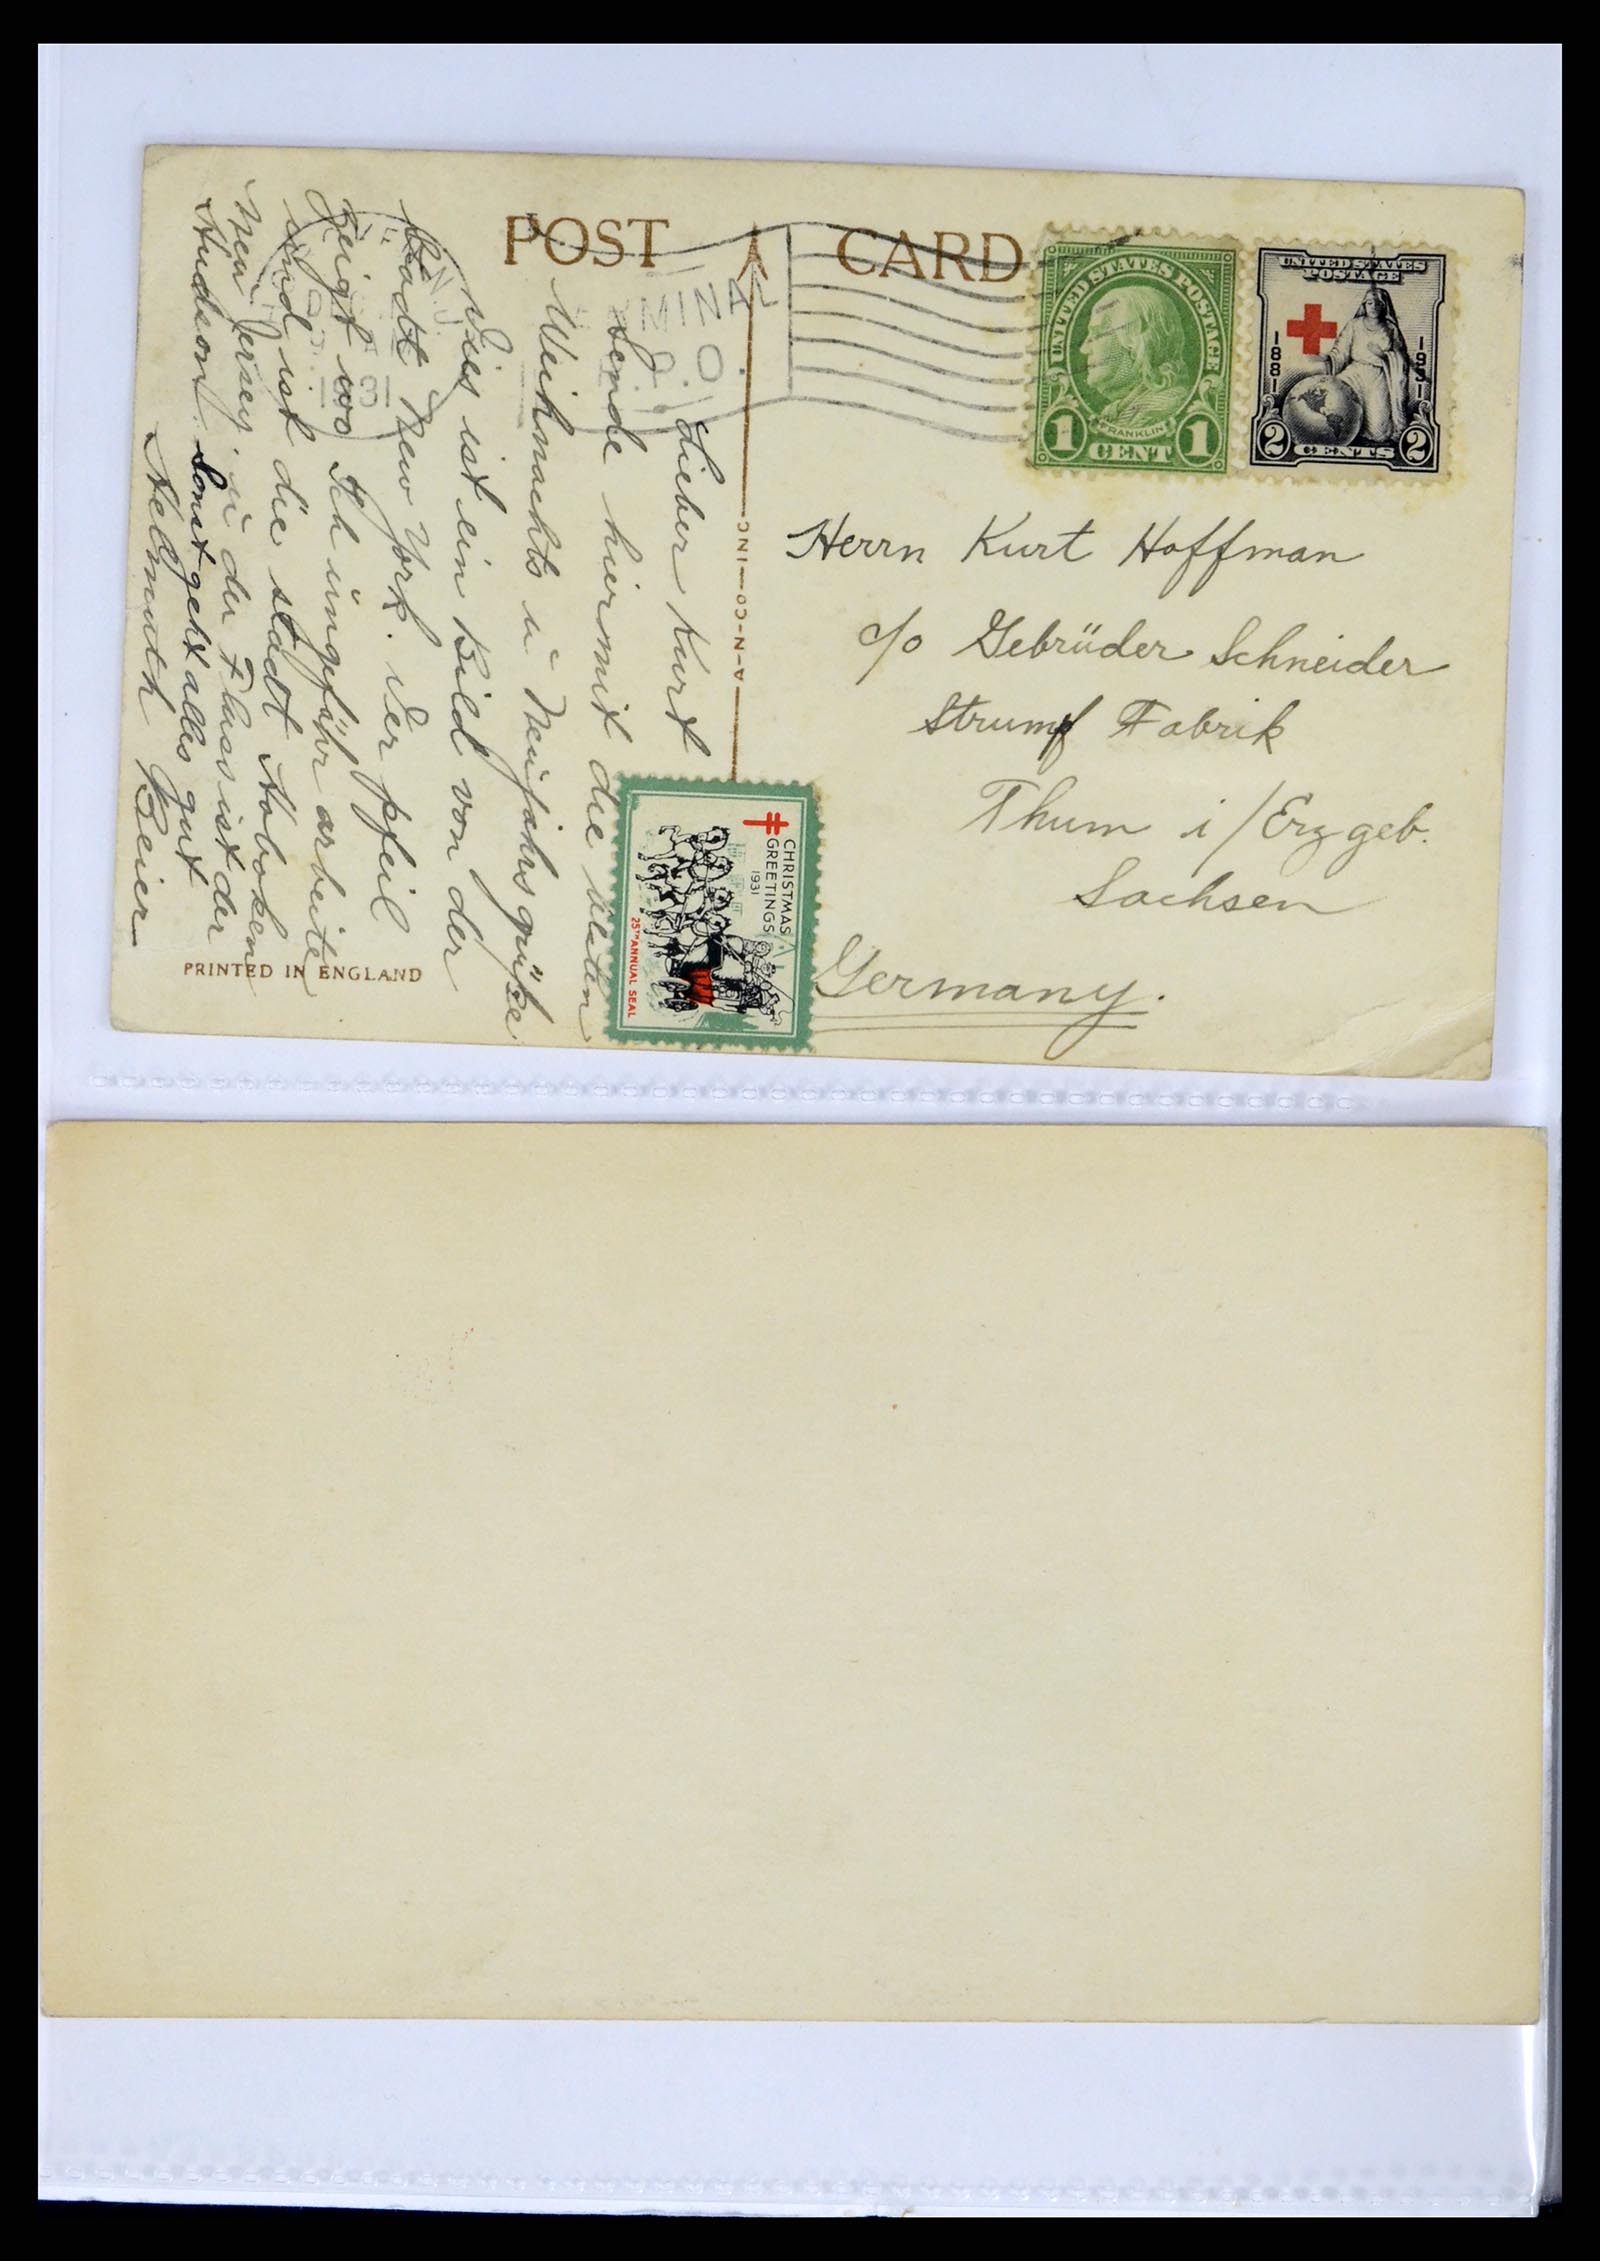 POST CARD
A-N-CO-INC
UNITED STATES POSTAGE
FRANKLIN
1 CENT 1
UNITED STATES
POSTAGE
1881 1931
2 CENTS 2
Herrn Kurt Hoffman
c/o Gebrüder Schneider
Strumpf Fabrik
Thum i/Erzgeb.
Sachsen
Germany.
Lieber Kurt
sende hiermit die besten
Weihnachts u Neujahrsgrüße
Dies ist ein Bild von der
Stadt New York. Der pfeil
zeigt wo Ich ungefähr arbeite
und ist die stadt Hoboken
New Jersey. u der Fluss ist der
Hudson. Sonst geht alles gut
Hellmuth Beier
CHRISTMAS
GREETINGS
1931
25TH ANNUAL SEAL
PRINTED IN ENGLAND